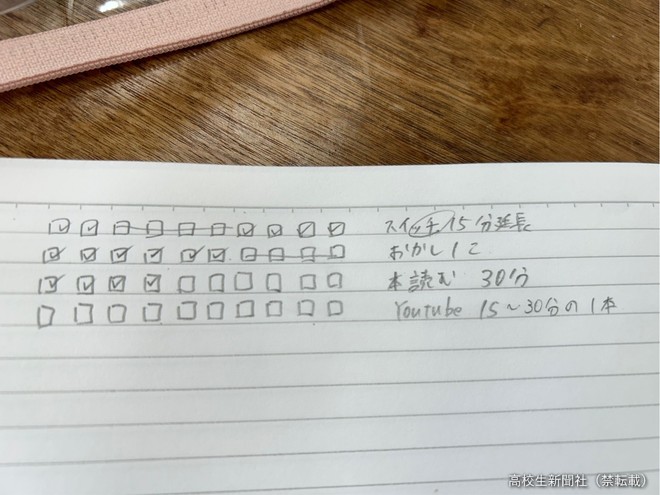 ☑☑☐☐☐☐☑☑☑☑ スイッチ15分延長
☑☑☑☑☑☑☐☐☐☐ おかし1こ
☑☑☑☑☐☐☐☐☐☐ 本読む 30分
☐☐☐☐☐☐☐☐☐☐ Youtube 15~30分の1本
高校生新聞社(禁転載)